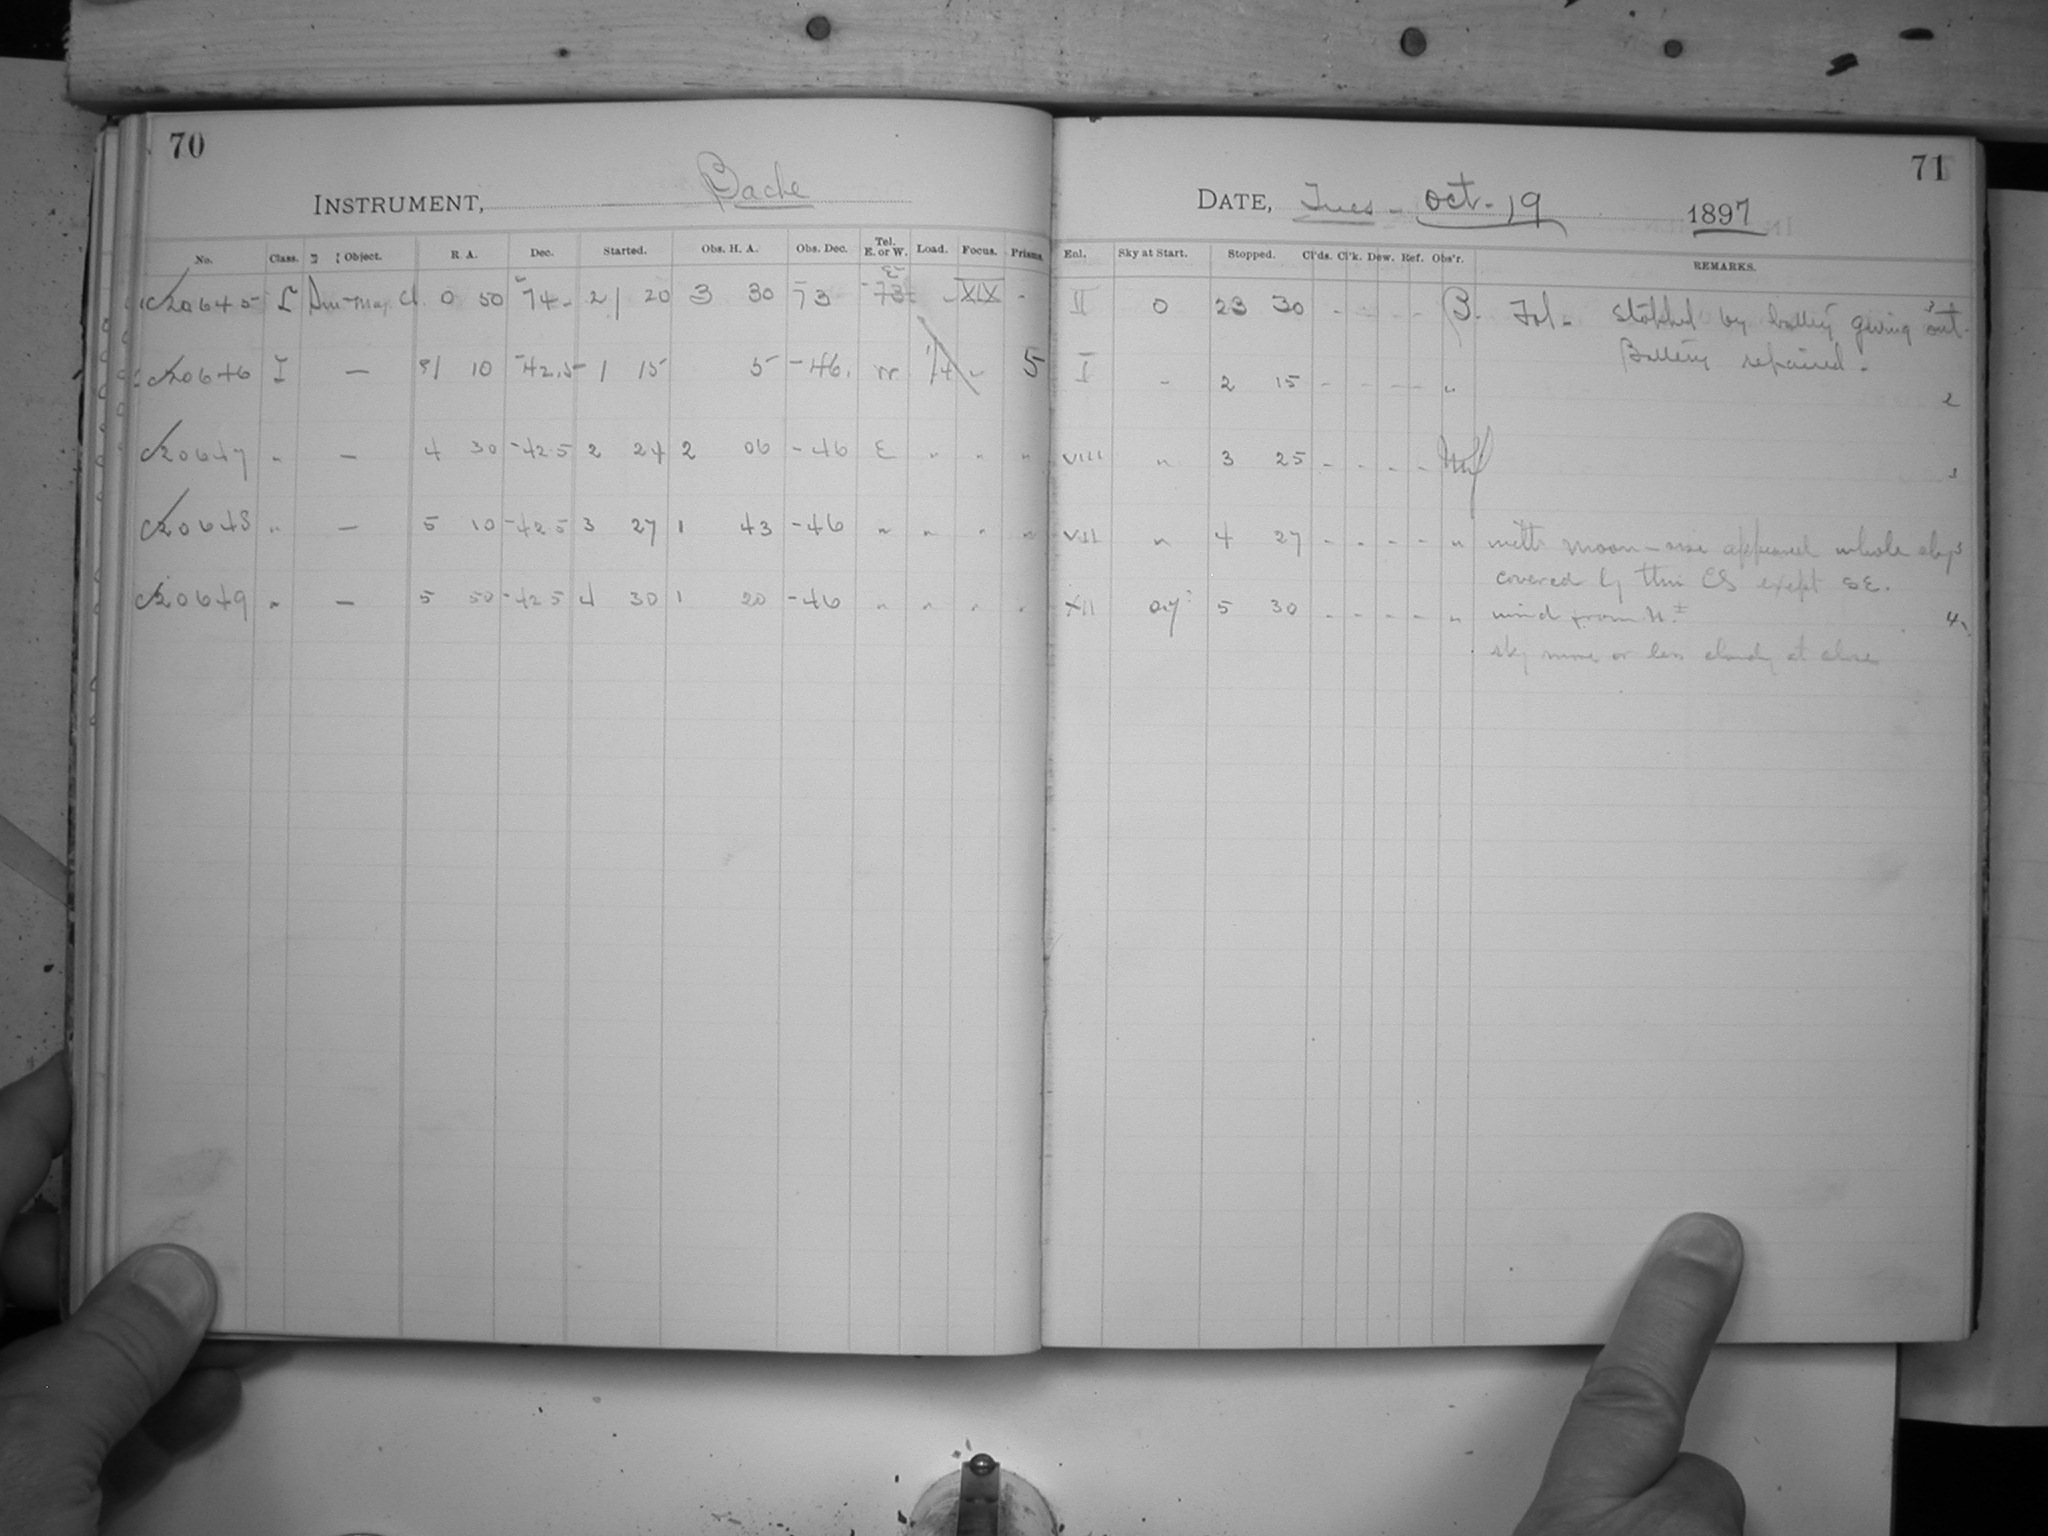 70
INSTRUMENT, Bache
No. Class. Object. R. A. Dec. Started. Obs. H. A. Obs. Dec. Tel. E. or W. Load. Focus. Prisms.
C20645 L 0 50 -74 21 20 3 30 -73 E XIX -
C20646 I — 81 10 -42.5 1 15 5 -46. W 14 5
C20647 " — 4 30 -42.5 2 24 2 06 -46 E " " "
C20648 " — 5 10 -42 5 3 27 1 43 -46 " " " "
C20649 " — 5 50 -42 5 4 30 1 20 -46 " " " "
71
DATE, Tues - Oct. 19 1897
Enl. Sky at Start. Stopped. Cl'ds. Cl'k. Dew. Ref. Obs'r. REMARKS.
II 0 23 30 - - - - B. Fol- Stopped by battery giving out. 3
Battery repaired.
I - 2 15 - - - - " 2
VIII " 3 25 - - - - 3
VII " 4 27 - - - - " with moon-rise appeared whole sky 3
covered by thin CS exept SE.
XII 5 30 - - - - " wind from N. ± 4
sky more or less cloudy at close